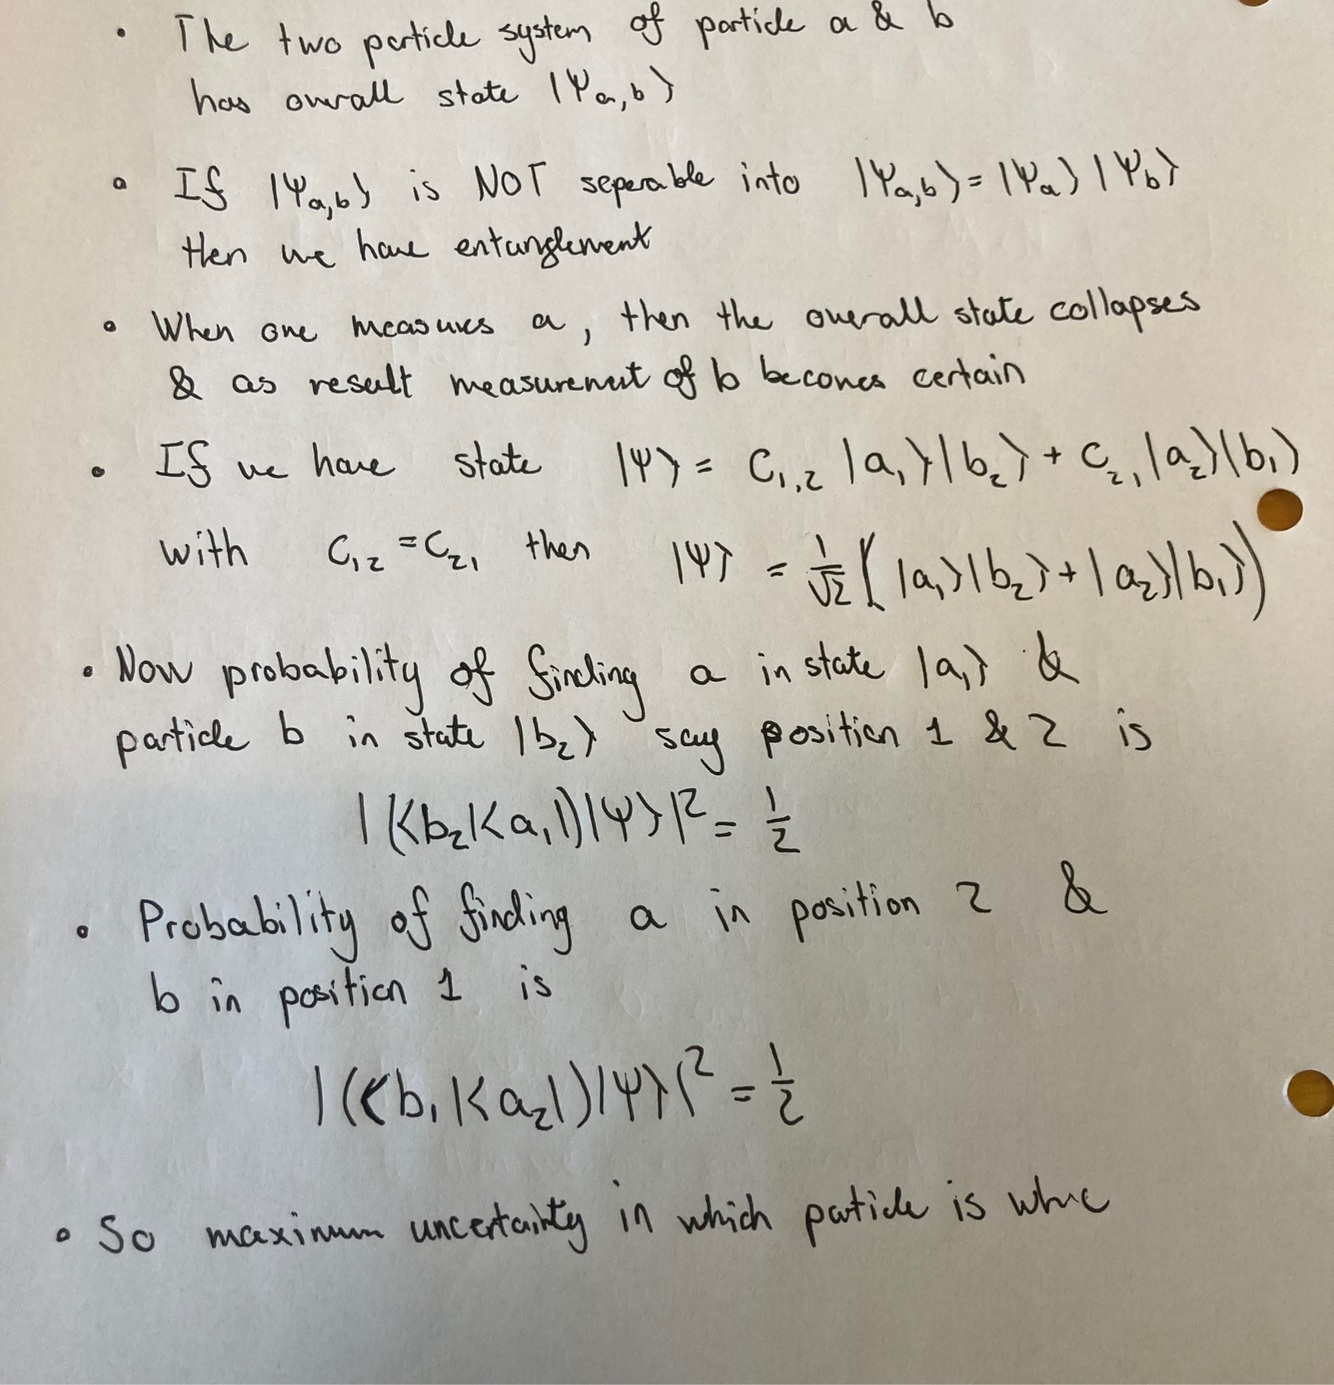 • The two particle system of particle a & b
has overall state |Ψa,b⟩
• If |Ψa,b⟩ is NOT seperable into |Ψa,b⟩ = |Ψa⟩ |Ψb⟩
then we have entanglement
• When one measures a, then the overall state collapses
& as result measurement of b becomes certain
• If we have state |Ψ⟩ = C₁,₂ |a₁⟩|b₂⟩ + C₂₁ |a₂⟩|b₁⟩
with C₁₂ = C₂₁ then |Ψ⟩ = 1/√2 (|a₁⟩|b₂⟩ + |a₂⟩|b₁⟩)
• Now probability of finding a in state |a₁⟩ &
particle b in state |b₂⟩ say position 1 & 2 is
|(⟨b₂|⟨a₁|)|Ψ⟩|² = 1/2
• Probability of finding a in position 2 &
b in position 1 is
|(⟨b₁|⟨a₂|)|Ψ⟩|² = 1/2
• So maximum uncertainty in which particle is where